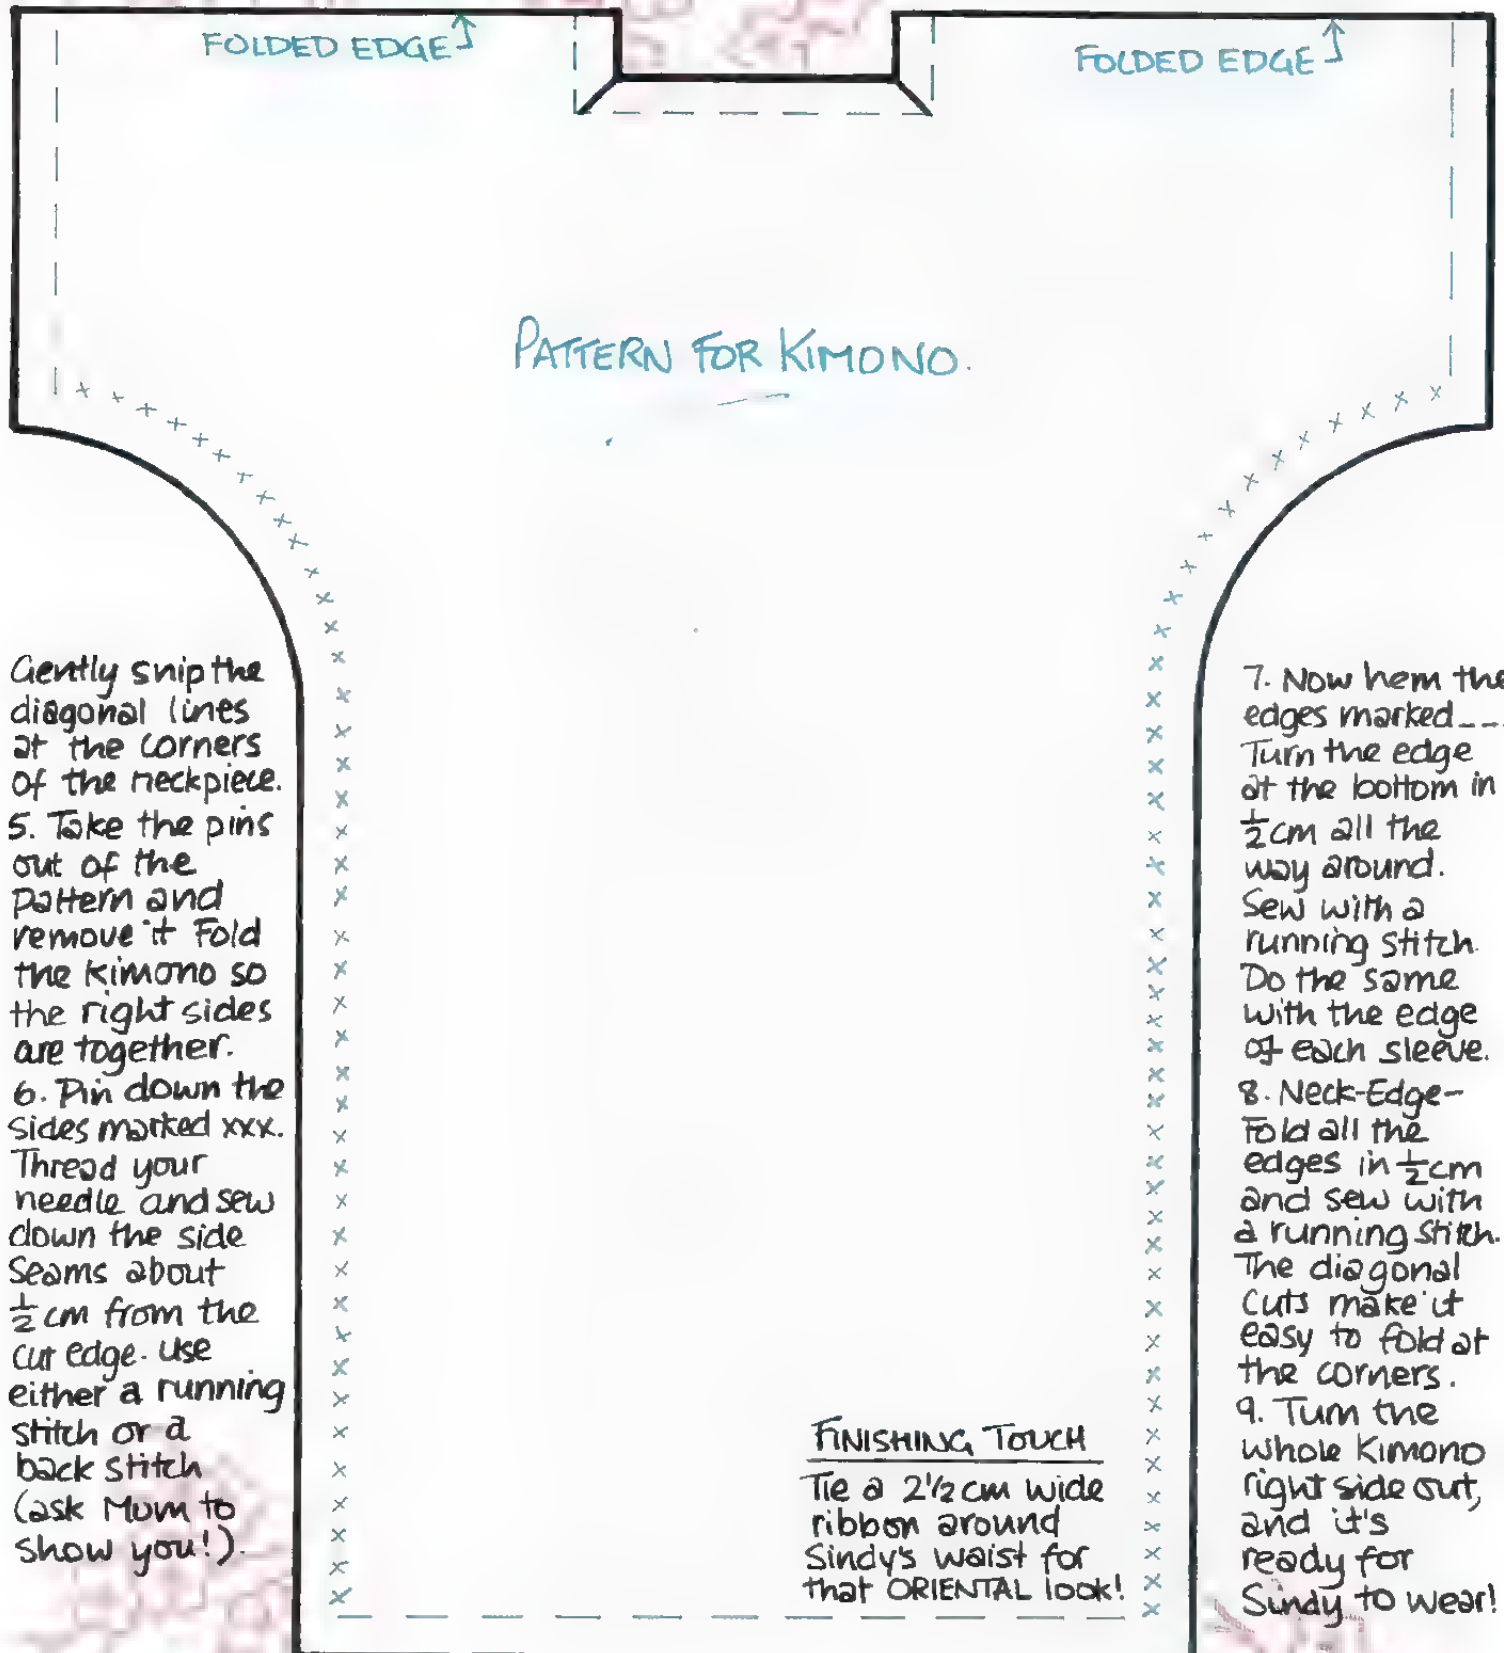 FOLDED EDGE
FOLDED EDGE
PATTERN FOR KIMONO.
Gently snip the
diagonal lines
at the corners
of the neckpiece.
5. Take the pins
out of the
pattern and
remove it Fold
the kimono so
the right sides
are together.
6. Pin down the
sides marked xxx.
Thread your
needle and sew
down the side
seams about
½ cm from the
cut edge. Use
either a running
stitch or a
back stitch
(ask Mum to
show you!).
FINISHING TOUCH
Tie a 2½ cm wide
ribbon around
Sindy's waist for
that ORIENTAL look!
7. Now hem the
edges marked ---
Turn the edge
at the bottom in
½ cm all the
way around.
Sew with a
running stitch.
Do the same
with the edge
of each sleeve.
8. Neck-Edge-
Fold all the
edges in ½ cm
and sew with
a running stitch.
The diagonal
cuts make it
easy to fold at
the corners.
9. Turn the
whole Kimono
right side out,
and it's
ready for
Sindy to wear!